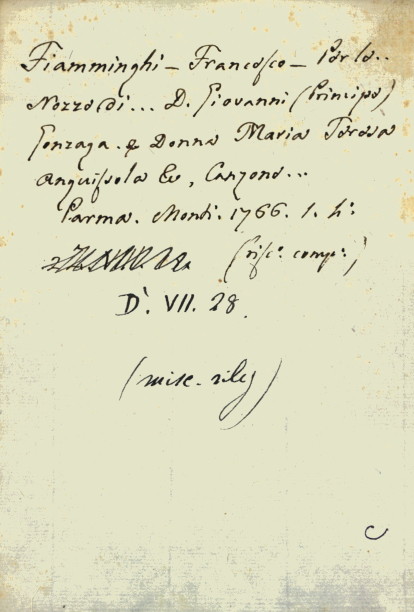 Fiamminghi - Francesco - Per le..
Nozze di... D. Giovanni (Principe)
Gonzaga. e Donna Maria Teresa
Anguissola &c, Canzone...
Parma. Monti. 1766. 1. h:
D'. VII. 28.
(misc. rileg)
C